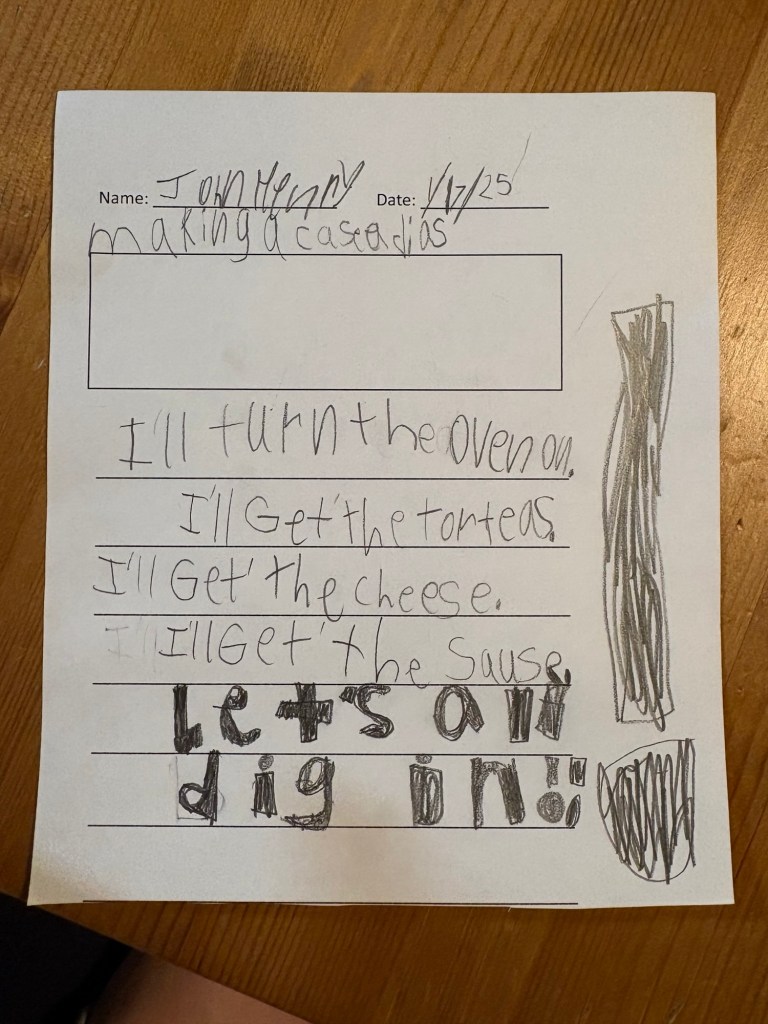 Name: John Henry Date: 1/17/25
making a caseadias
I'll turn the oven on.
I'll Get the torteas.
I'll Get the cheese.
I I'll Get the Sause.
Let's all
dig in!!